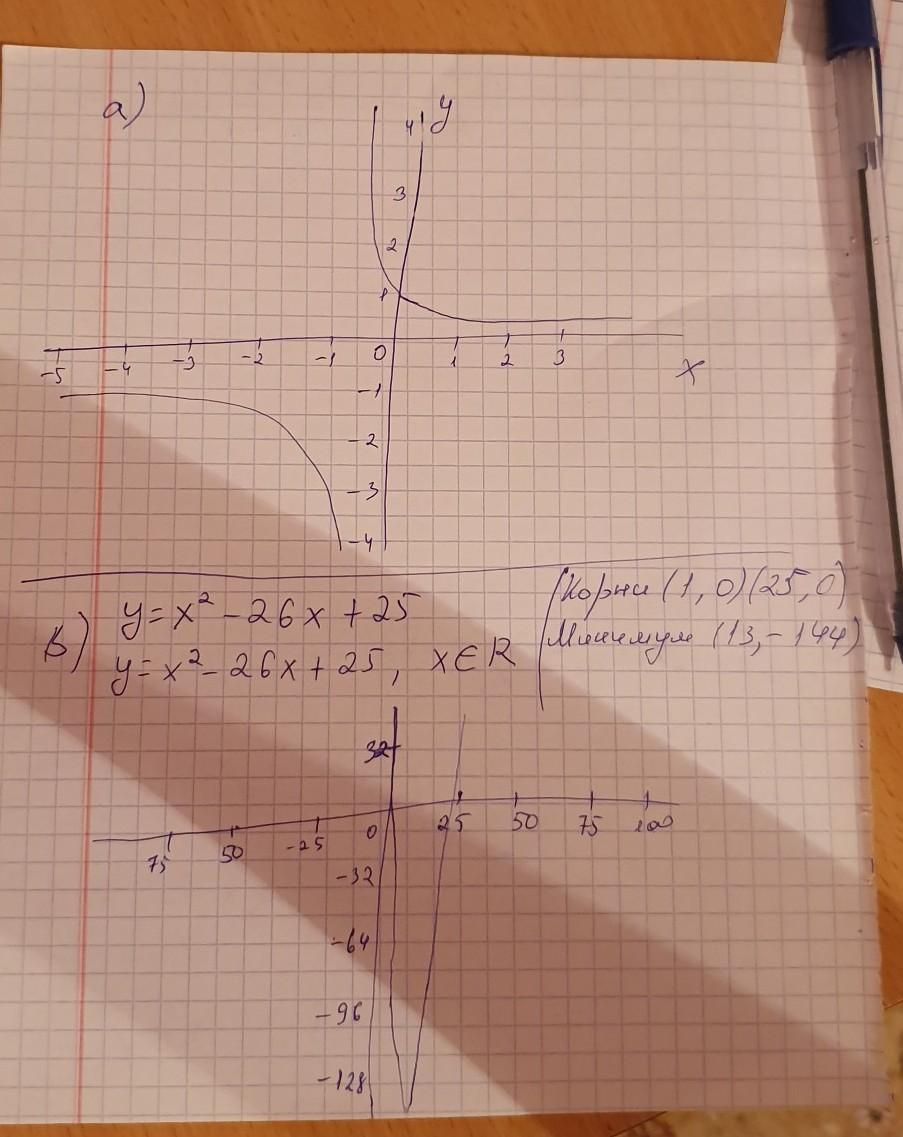 а)
y
4
3
2
1
-5 -4 -3 -2 -1 0 1 2 3
x
-1
-2
-3
-4
y=x²-26x+25
Корни (1,0)(25,0)
в)
y=x²-26x+25, x∈R
Минимум (13,-144)
32
75 50 -25 0 25 50 75 100
-32
-64
-96
-128